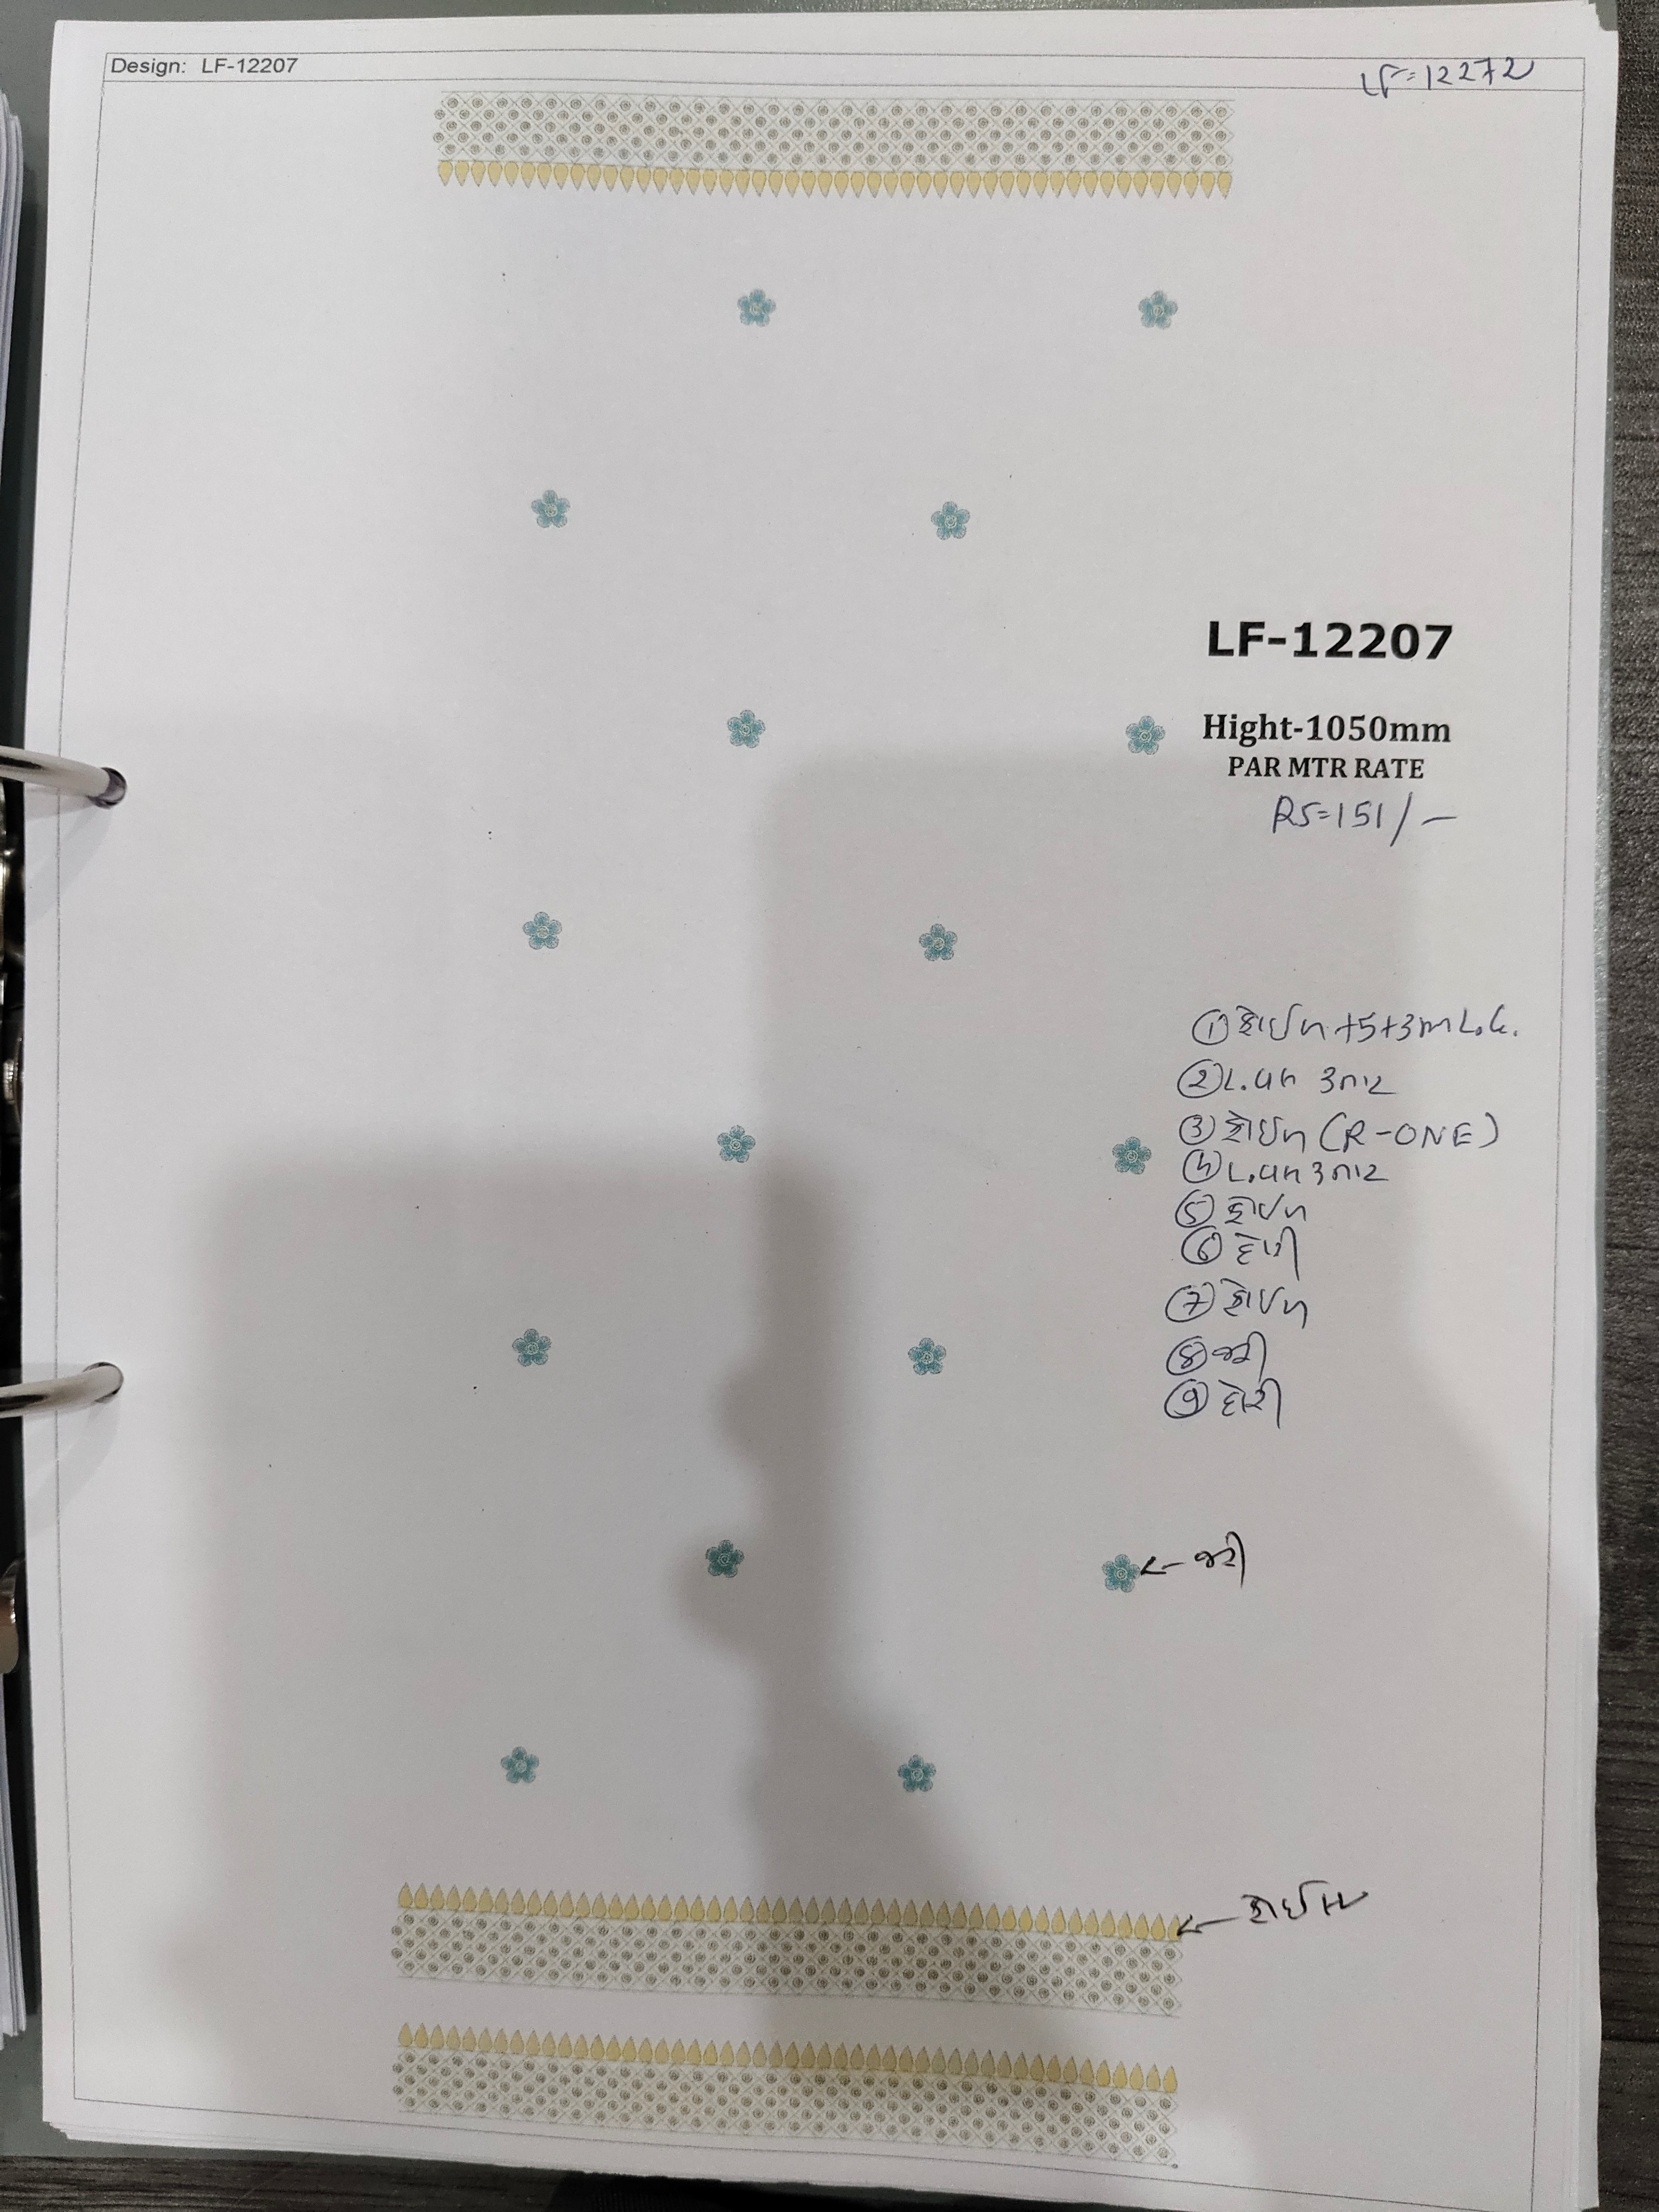 Design: LF-12207
LF=12272
LF-12207
Hight-1050mm
PAR MTR RATE
RS=151/-
① કોઈન +5+3m L.G.
② L.વાન 3તાર
③ કોઈન (R-ONE)
④ L.વાન 3તાર
⑤ કોઈન
⑥
⑦ કોઈન
⑧ જરી
⑨ દોરી
← જરી
← કોઈન